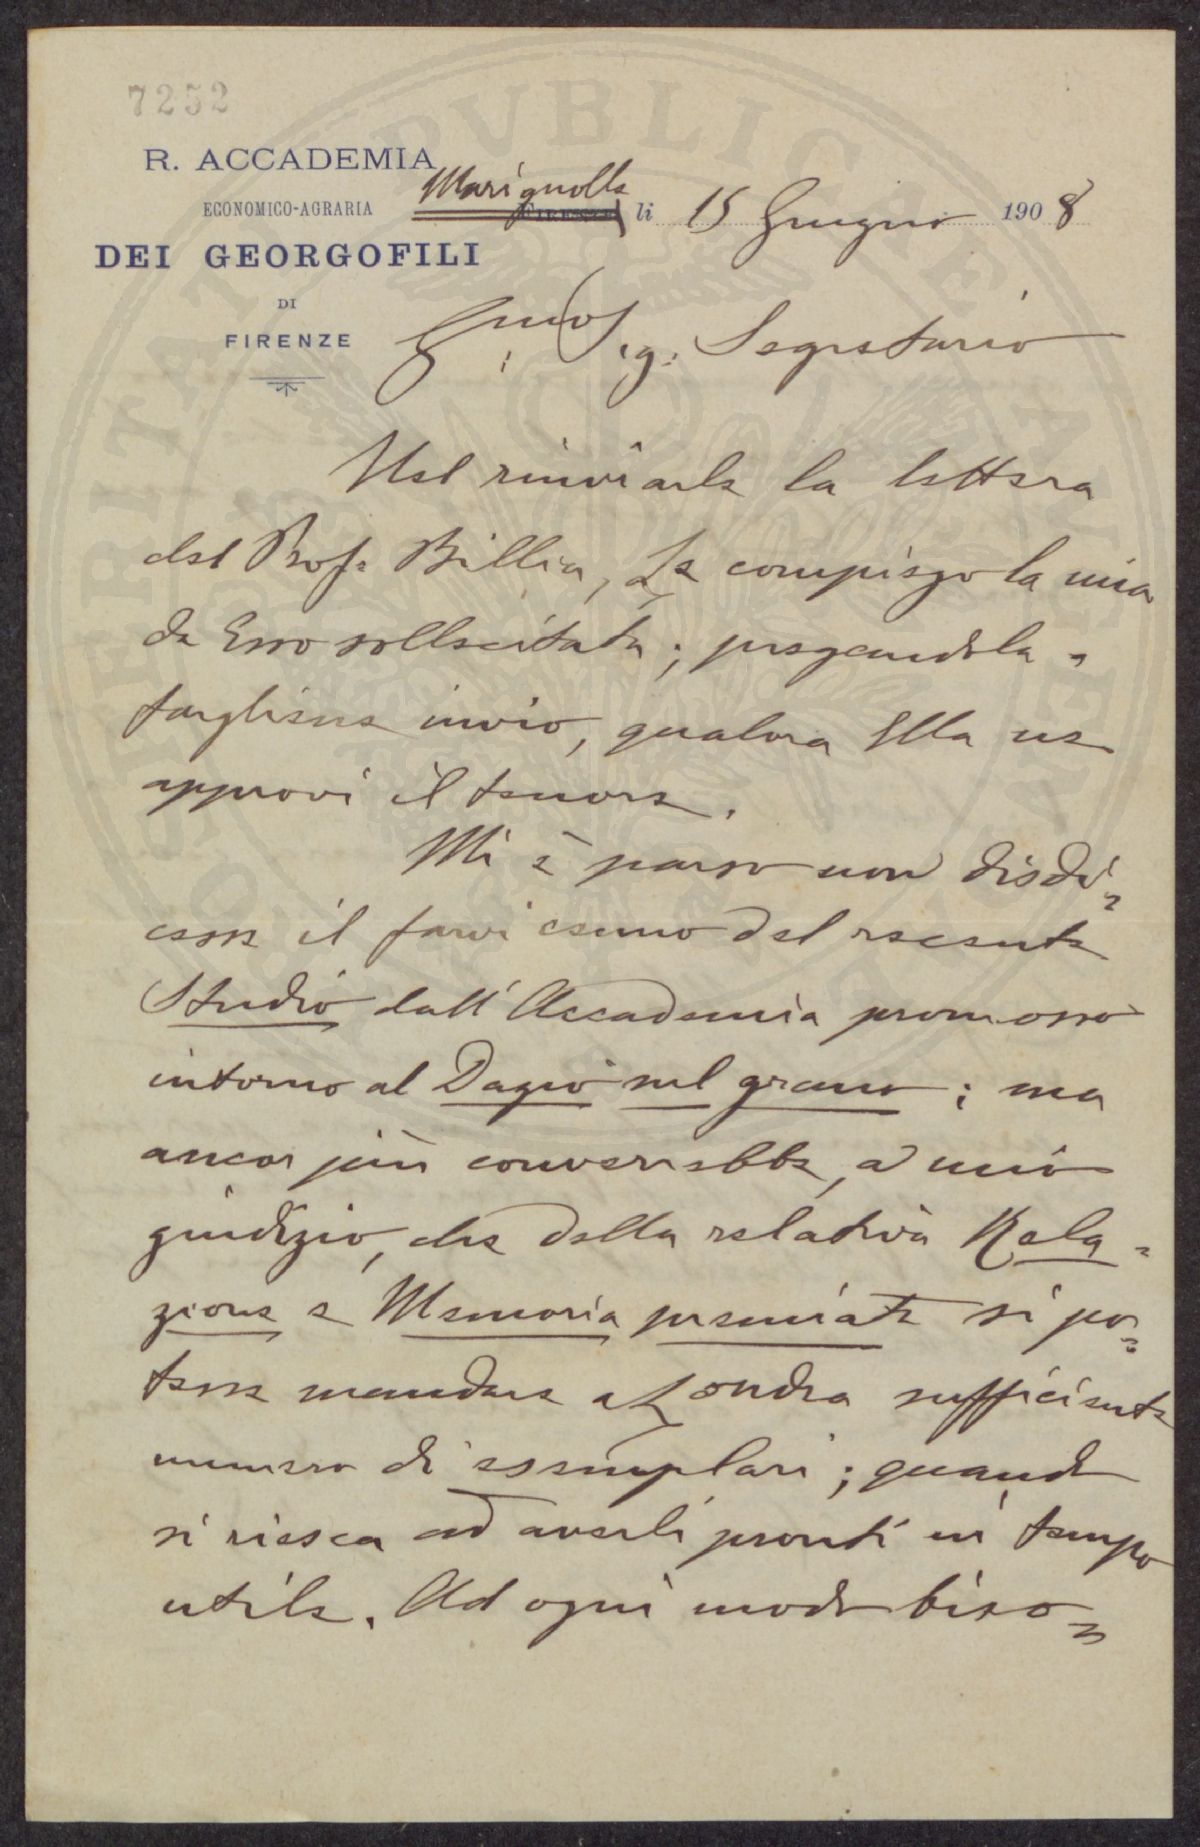 7252
R. ACCADEMIA
ECONOMICO-AGRARIA
DEI GEORGOFILI
DI
FIRENZE
Marignolle
FIRENZE, li 15 Giugno 1908
Sig. Segretario
Nel rinviarle la lettera
del Prof. Billia, Le compiego la mia
da Esso sollecitata; pregandola a
fargliene invio, qualora Ella ne
approvi il tenore.
Mi è parso non disdi=
cesse il farvi cenno del recente
Studio dall'Accademia promosso
intorno al Dazio sul grano; ma
ancor più converrebbe, a mio
giudizio, che della relativa Rela=
zione e Memoria premiate si po=
tesse mandare a Londra sufficiente
numero di esemplari; quando
si riesca ad averli pronti in tempo
utile. Ad ogni modo biso=